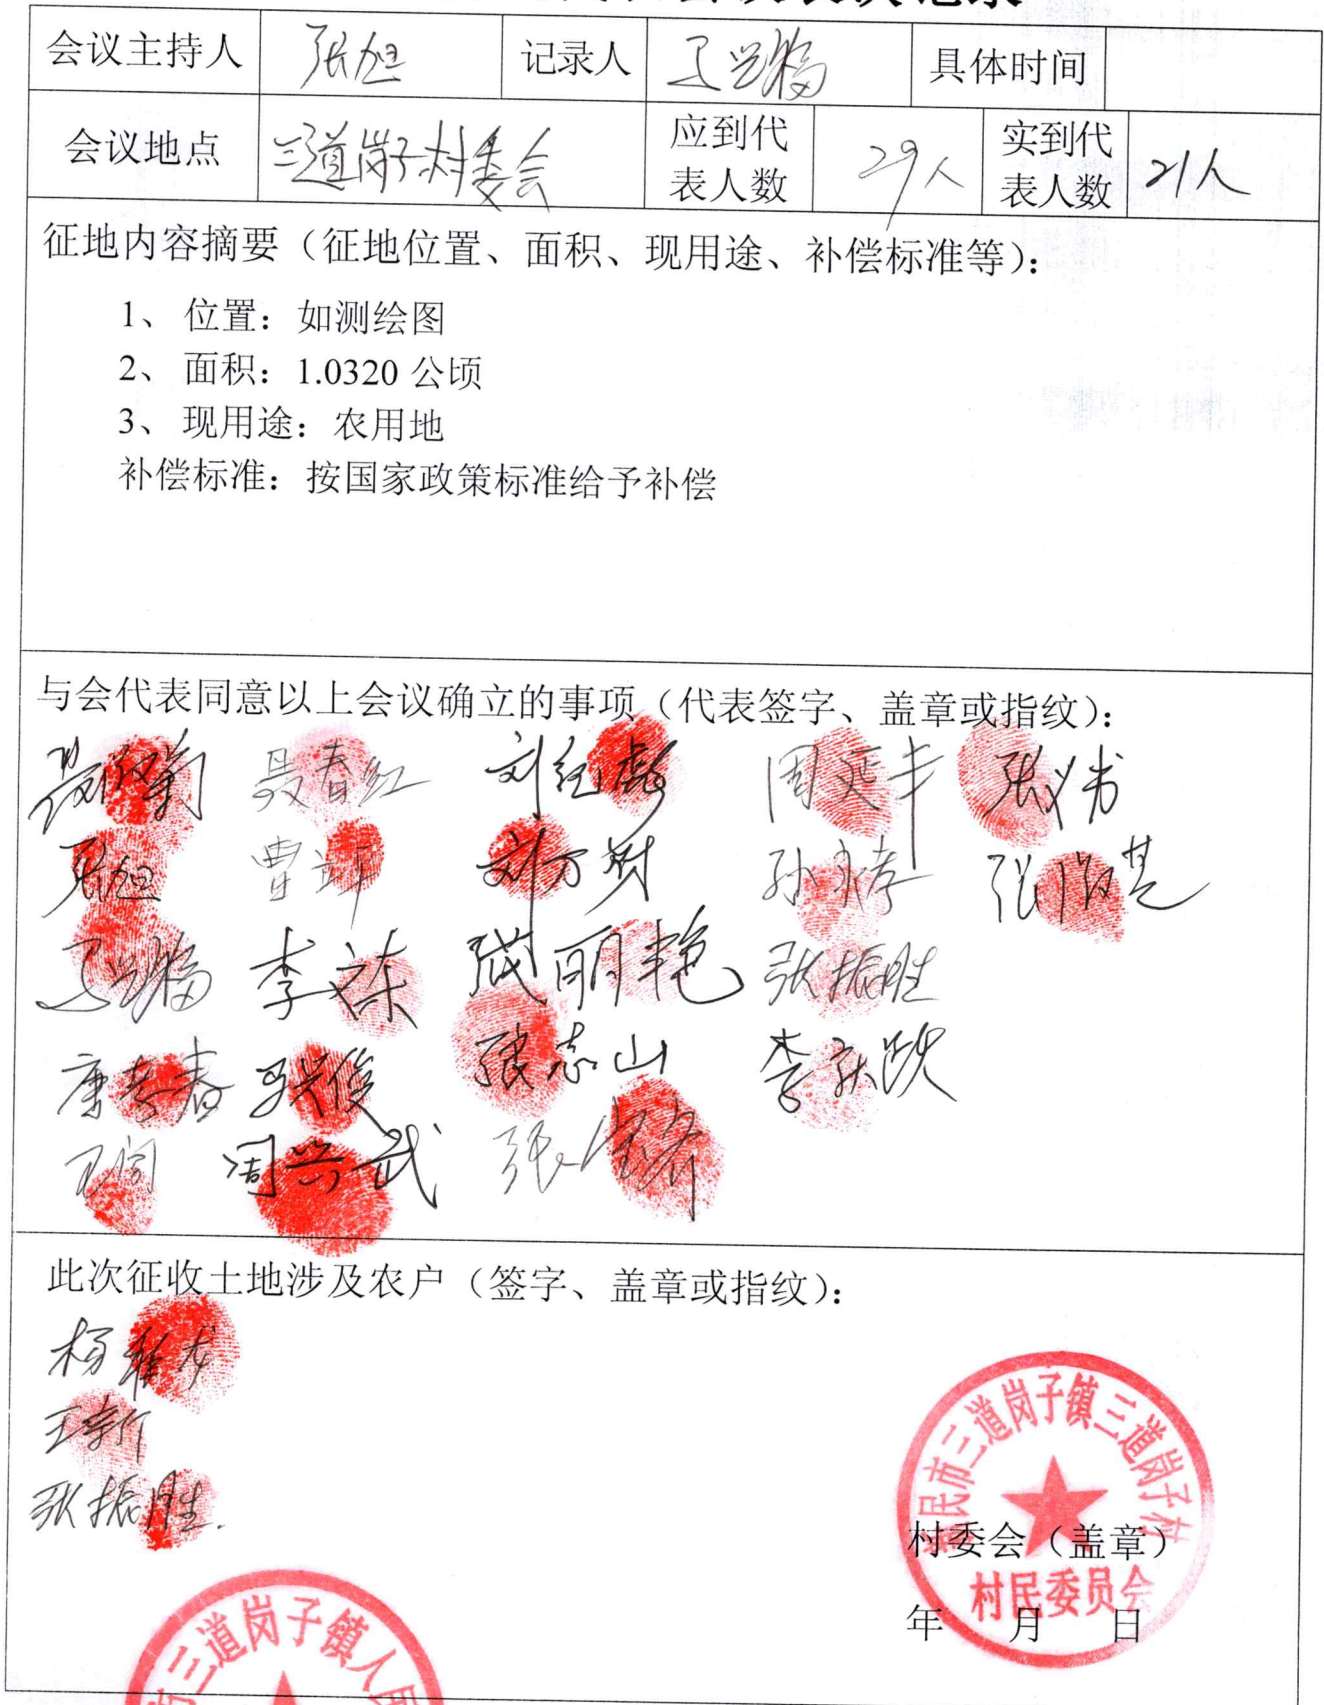 会议主持人 张旭 记录人 具体时间
会议地点 三道岗子村委会 应到代表人数 29人 实到代表人数 21人
征地内容摘要（征地位置、面积、现用途、补偿标准等）：
1、 位置：如测绘图
2、 面积：1.0320 公顷
3、 现用途：农用地
补偿标准：按国家政策标准给予补偿
与会代表同意以上会议确立的事项（代表签字、盖章或指纹）：
聂春红 刘红彪 周延丰 张义书
张旭 曹辉 刘万财 孙永孝
李栋 张丽艳 张振胜
康春 马兴俊 张志山 李跃
周兴武 张宝
此次征收土地涉及农户（签字、盖章或指纹）：
杨雅龙
王新
张振胜.
新民市三道岗子镇三道岗子村
村委会（盖章）
村民委员会
年 月 日
市三道岗子镇人民